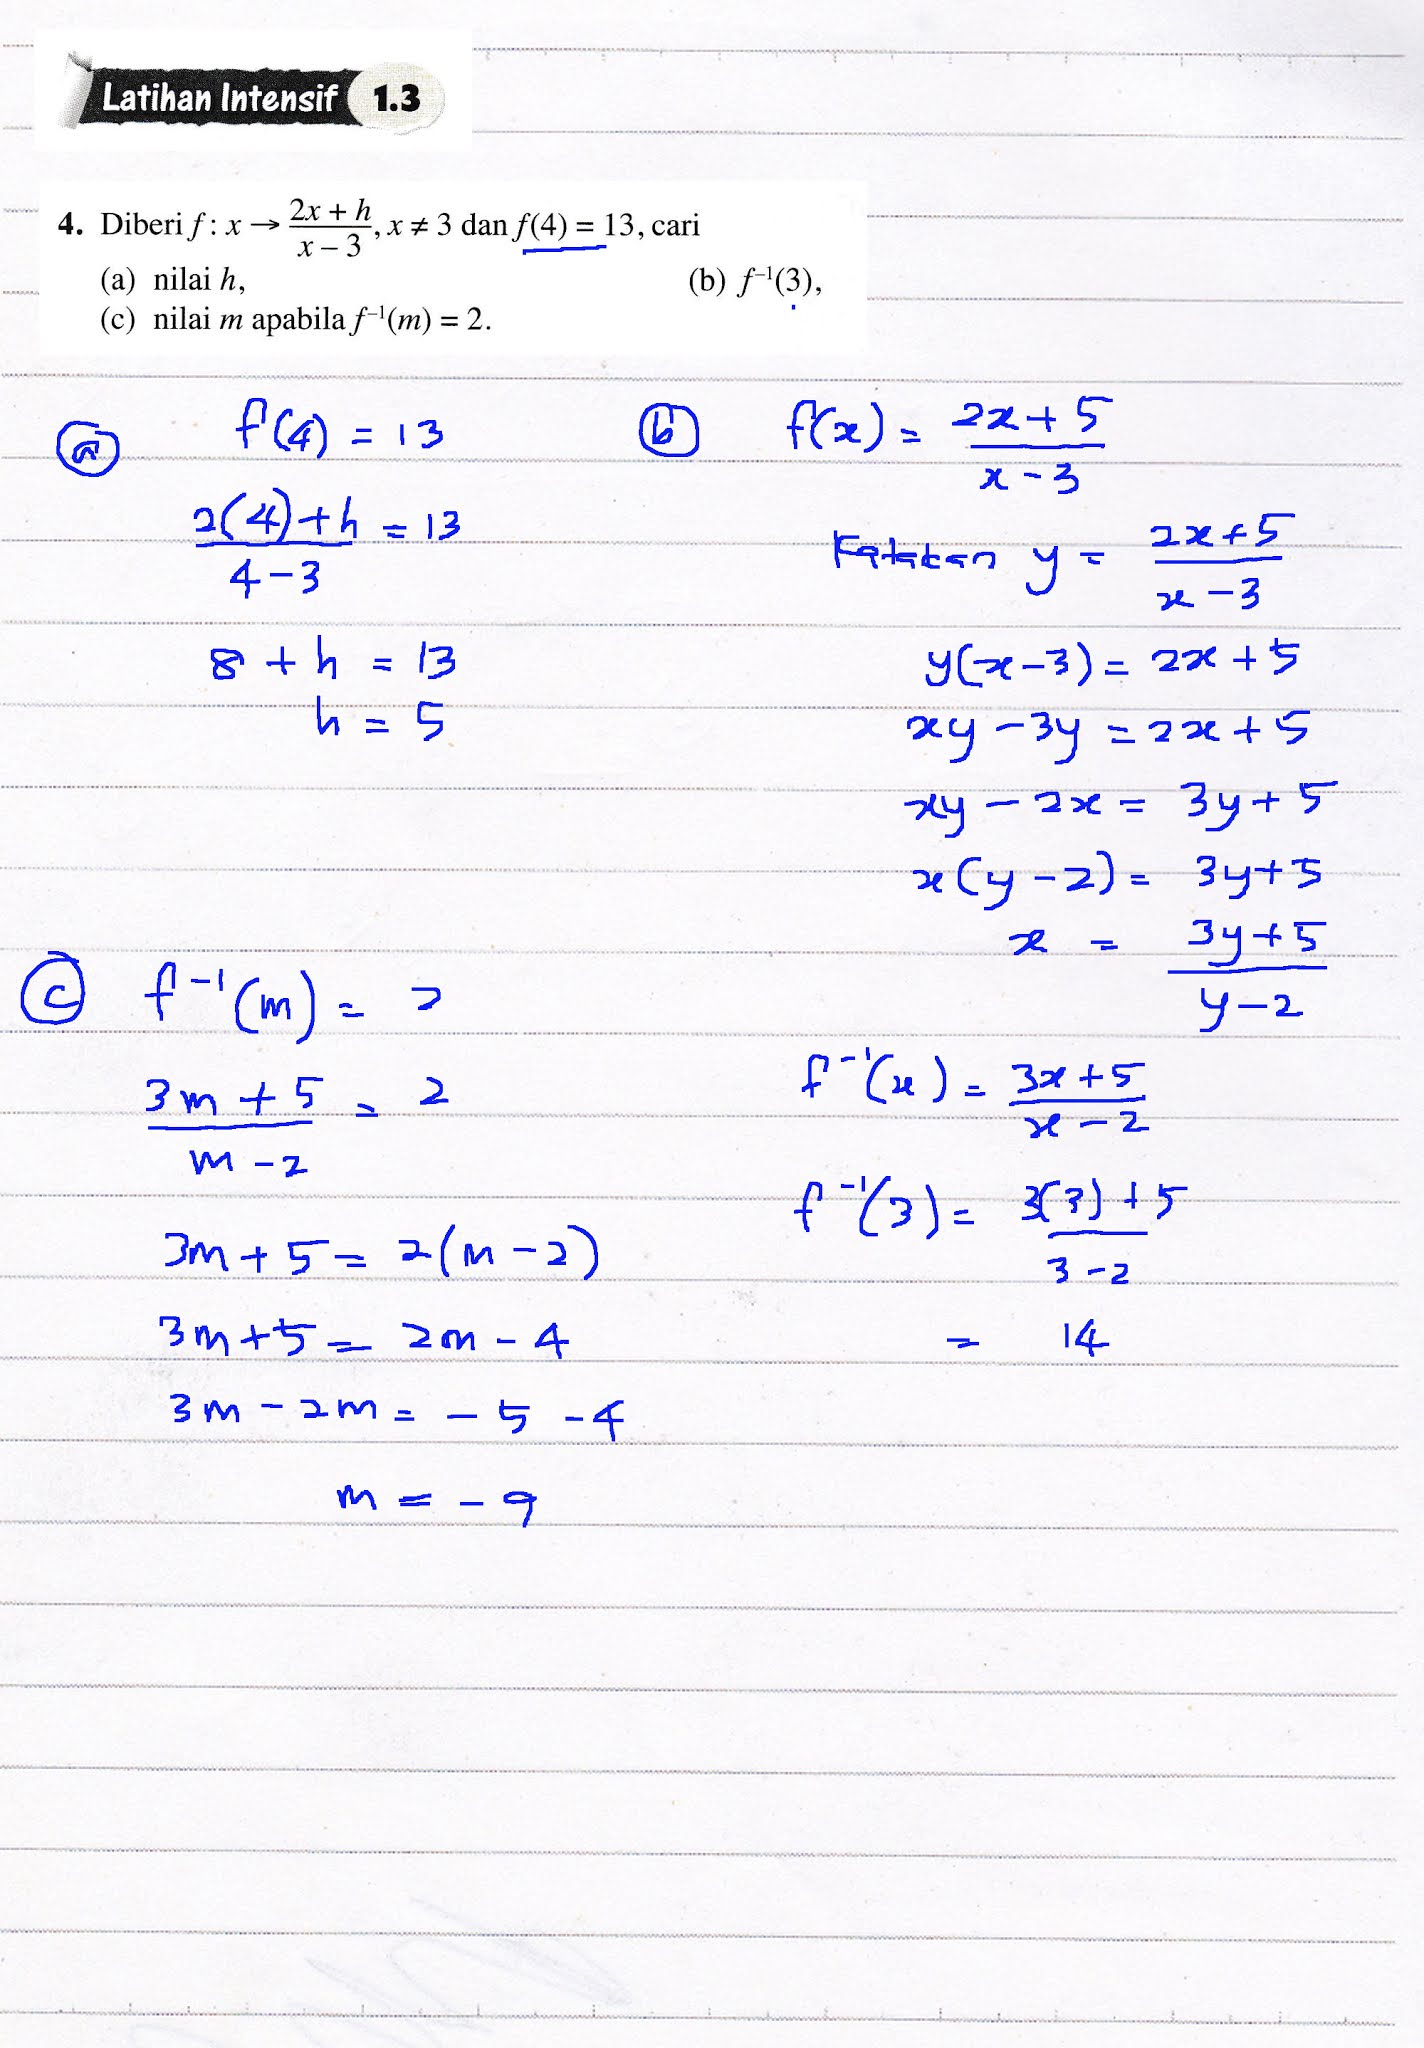 Latihan Intensif 1.3
4. Diberi f : x → (2x + h)/(x – 3), x ≠ 3 dan f(4) = 13, cari
(a) nilai h, (b) f⁻¹(3),
(c) nilai m apabila f⁻¹(m) = 2.
(a) f(4) = 13
(2(4)+h)/(4-3) = 13
8 + h = 13
h = 5
(b) f(x) = (2x+5)/(x-3)
Katakan y = (2x+5)/(x-3)
y(x-3) = 2x+5
xy - 3y = 2x+5
xy - 2x = 3y+5
x(y-2) = 3y+5
x = (3y+5)/(y-2)
f⁻¹(x) = (3x+5)/(x-2)
f⁻¹(3) = (3(3)+5)/(3-2)
= 14
(c) f⁻¹(m) = 2
(3m+5)/(m-2) = 2
3m+5 = 2(m-2)
3m+5 = 2m-4
3m-2m = -5-4
m = -9